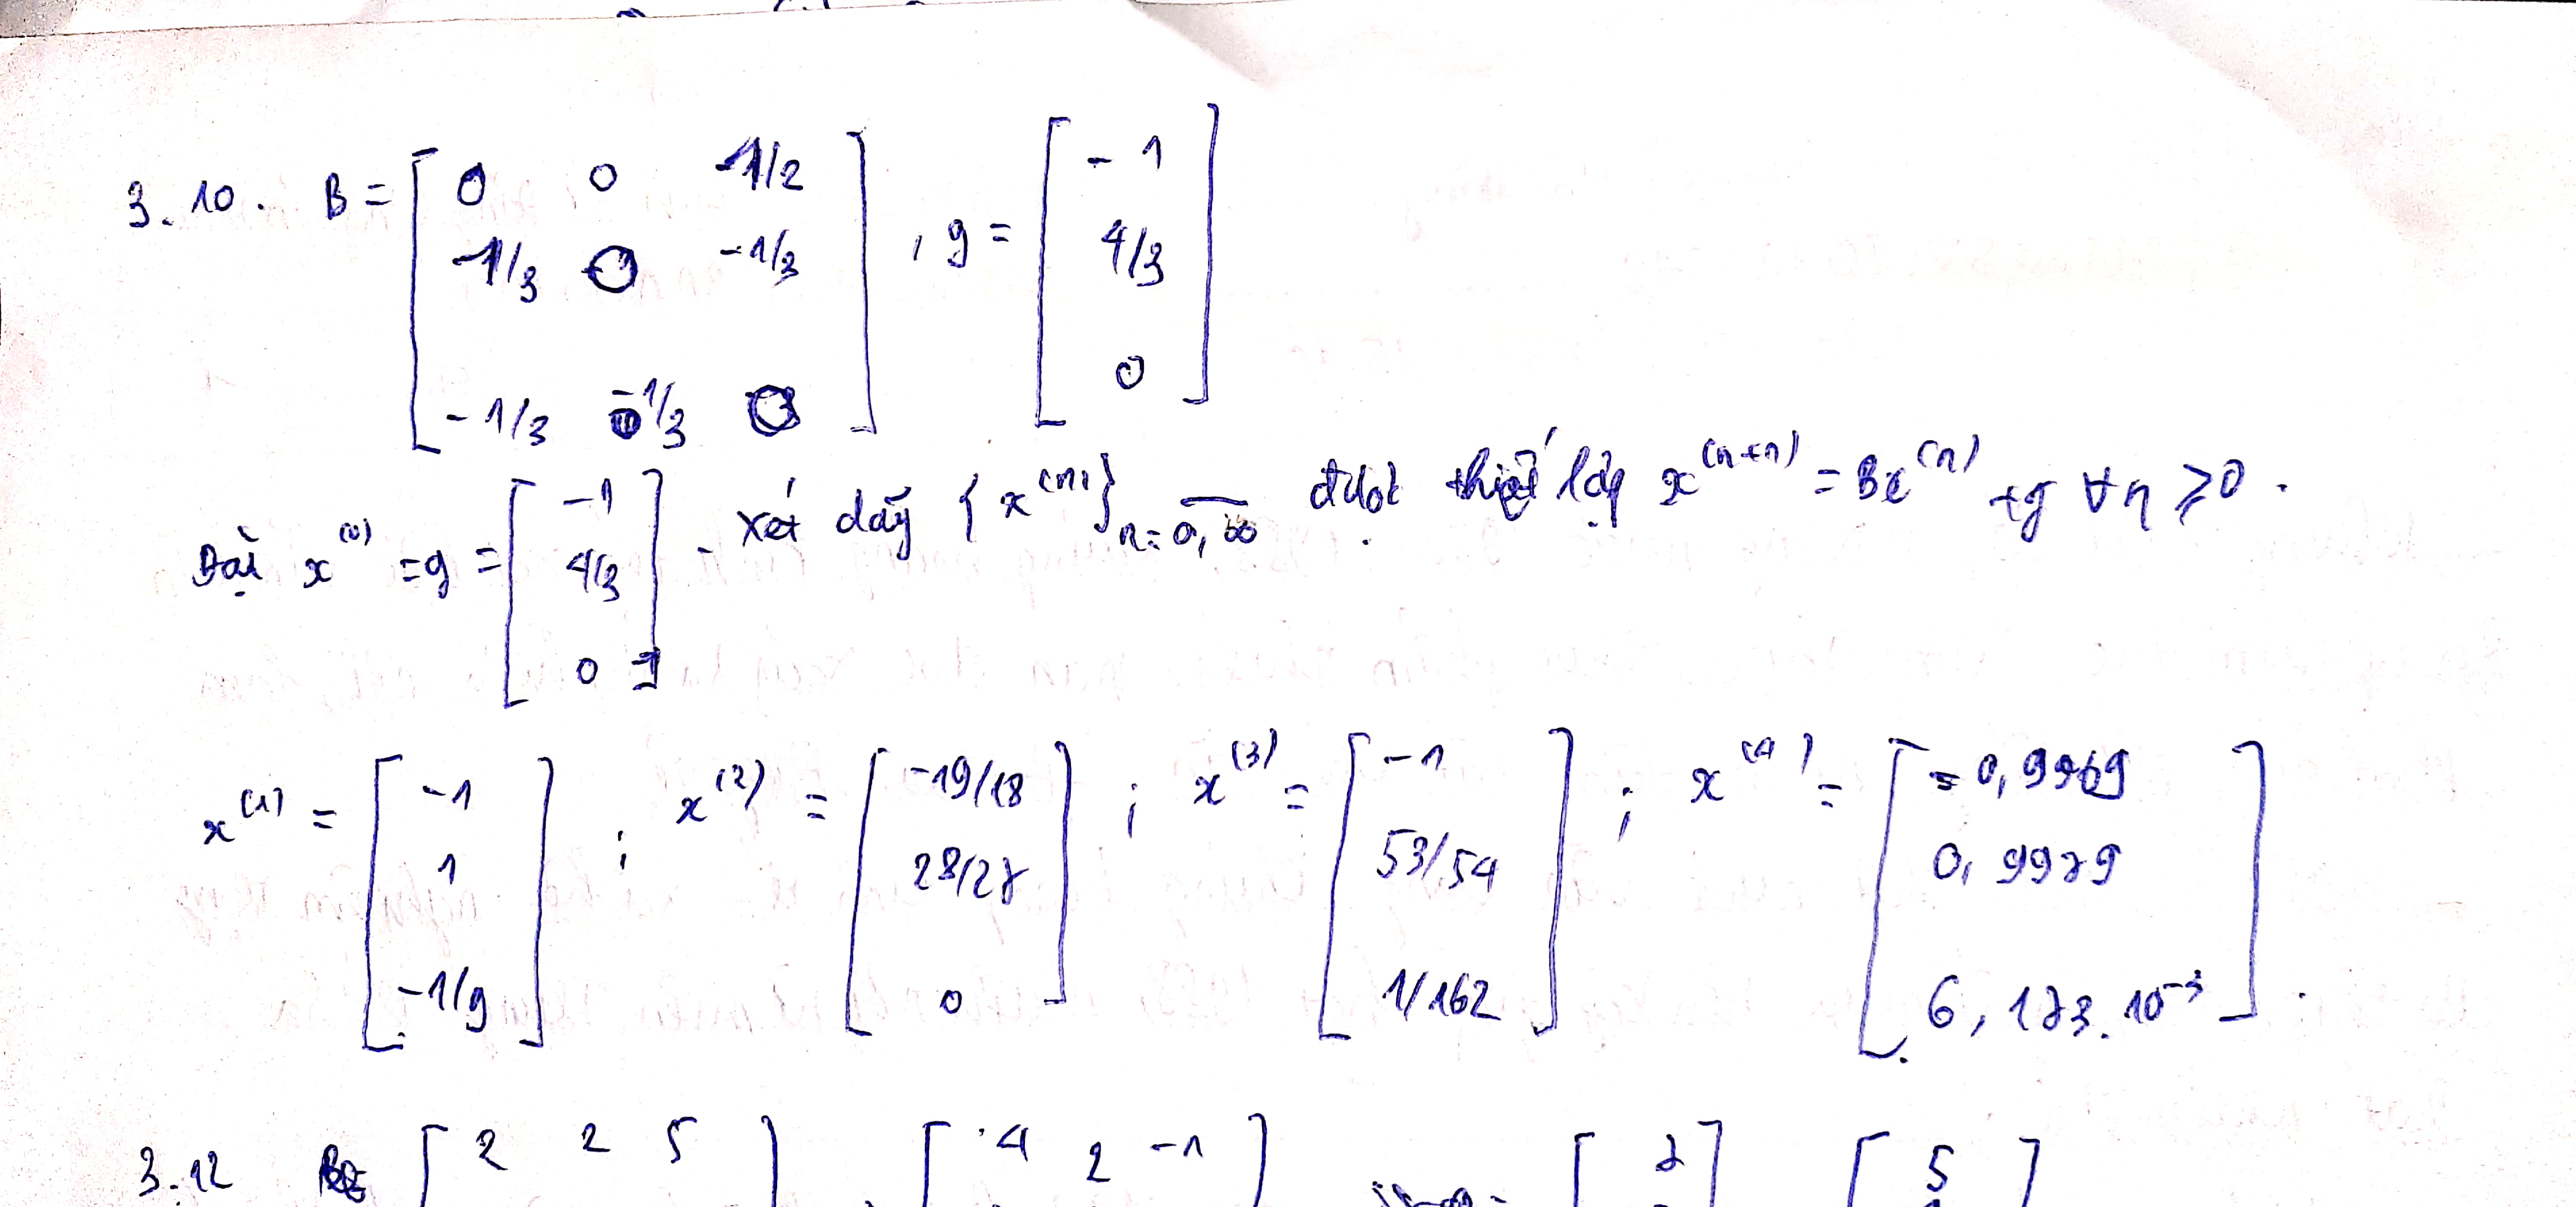 3.10. B = [ 0 0 -1/2 ; -1/3 0 -1/3 ; -1/3 -1/3 0 ] , g = [ -1 ; 4/3 ; 0 ]
Đặt x^(0) = g = [ -1 ; 4/3 ; 0 ] . Xét dãy {x^(n)}_{n=0,∞} được thiết lập x^(n+1) = Bx^(n) + g ∀n ≥ 0.
x^(1) = [ -1 ; 1 ; -1/9 ] ; x^(2) = [ -19/18 ; 28/27 ; 0 ] ; x^(3) = [ -1 ; 53/54 ; 1/162 ] ; x^(4) = [ -0,9969 ; 0,9979 ; 6,173.10^-3 ] .
3.12 [ 2 2 5 [ 4 2 -1 ] [ 7 ] [ 5 ]